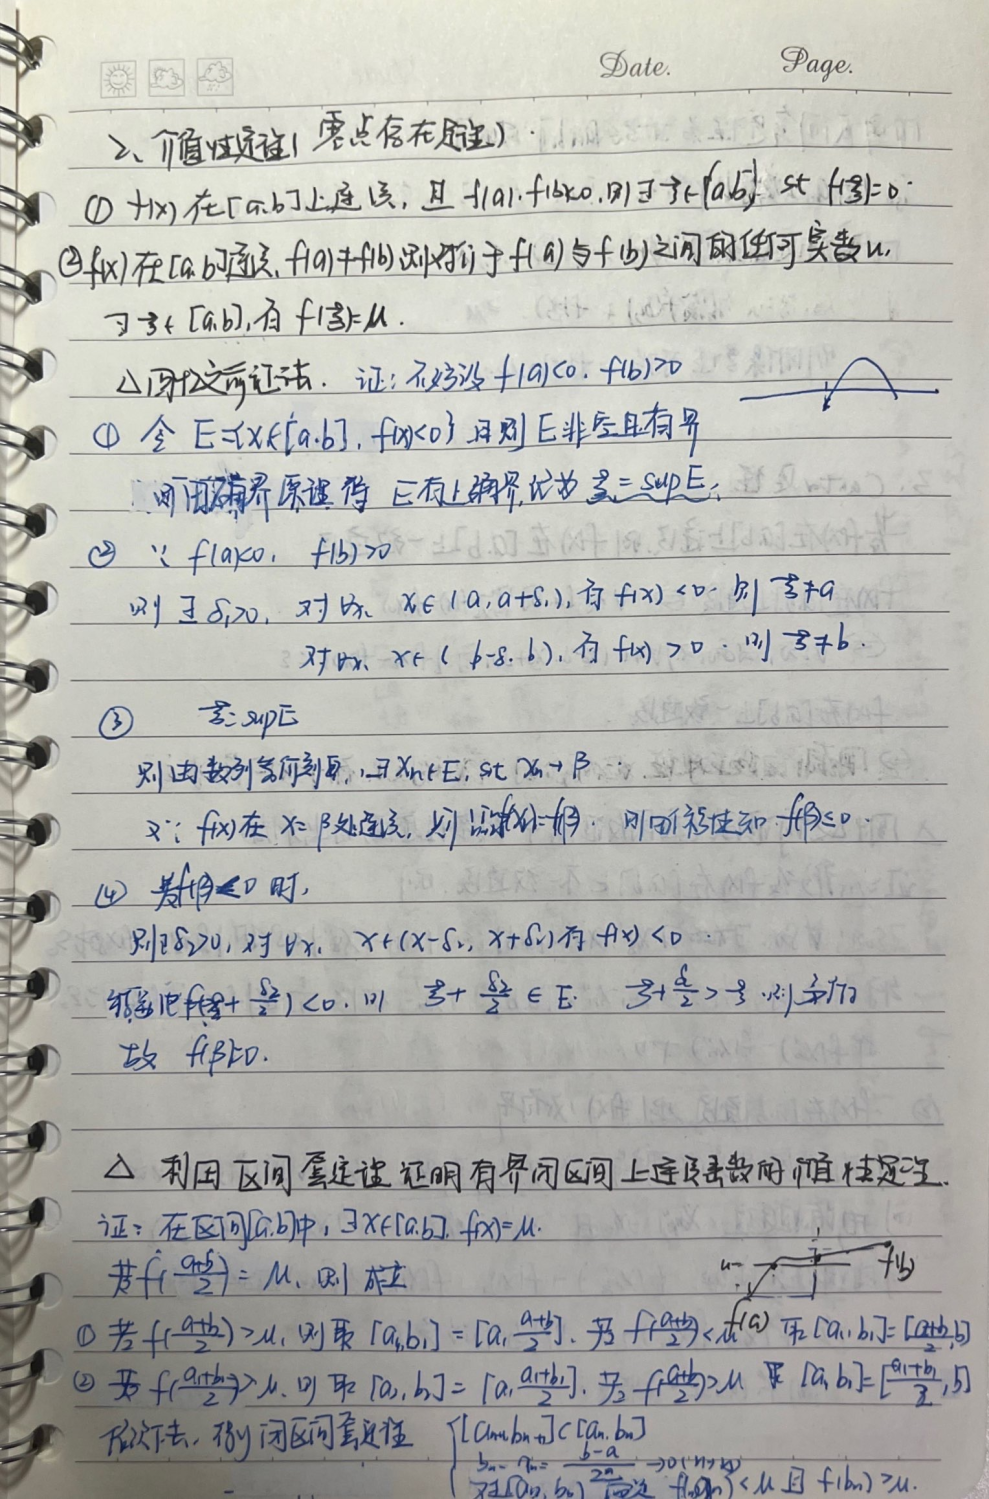 Date. Page.
2、介值性定理(零点存在定理)
① f(x)在[a,b]上连续,且 f(a)·f(b)<0,则∃ξ∈[a,b] st f(ξ)=0.
② f(x)在[a,b]连续,f(a)≠f(b)则对介于f(a)与f(b)之间的任何实数μ,
∃ξ∈[a,b],有 f(ξ)=μ.
△ 证法. 证:不妨设 f(a)<0. f(b)>0
① 令 E={x∈[a,b], f(x)<0} 则E非空且有界
则由确界原理得 E有上确界,记为 ξ=supE.
② ∵ f(a)<0, f(b)>0
则∃δ₁>0, 对∀x, x∈(a,a+δ₁),有f(x)<0. 则 ξ≠a
对∀x, x∈(b-δ,b),有f(x)>0. 则ξ≠b.
③ ξ=supE
则由数列 ∃xn∈E, st xn→β
又∵ f(x)在x=β处连续,则 =f(β). 则由 性知 f(β)≤0.
④ 若f(β)<0时,
则∃δ₂>0,对∀x, x∈(x-δ₂, x+δ₂)有f(x)<0.
f(ξ+δ₂/2)<0. 则 ξ+δ₂/2∈E. ξ+δ/2>ξ 则矛盾
故 f(β)=0.
△ 利用区间套定理证明有界闭区间上连续函数的介值性定理.
证: 在区间[a,b]中,∃x∈[a,b], f(x)=μ.
若f(a+b/2)=μ,则成立
μ f(b)
f(a)
① 若f(a+b/2)>μ,则取[a₁,b₁]=[a,a+b/2]. 若f(a+b/2)<μ 取[a₁,b₁]=[a+b/2,b]
② 若f(a₁+b₁/2)>μ,则取[a₂,b₂]=[a,a₁+b₁/2]. 若f(a+b/2)>μ 取[a,b]=[a₁+b₁/2,b]
依次下去,得闭区间套定理 {[an+1,bn+1]⊂[an,bn]
bn-an=b-a/2ⁿ→0(n→∞)
对[an,bn] f(an)<μ且f(bn)>μ.